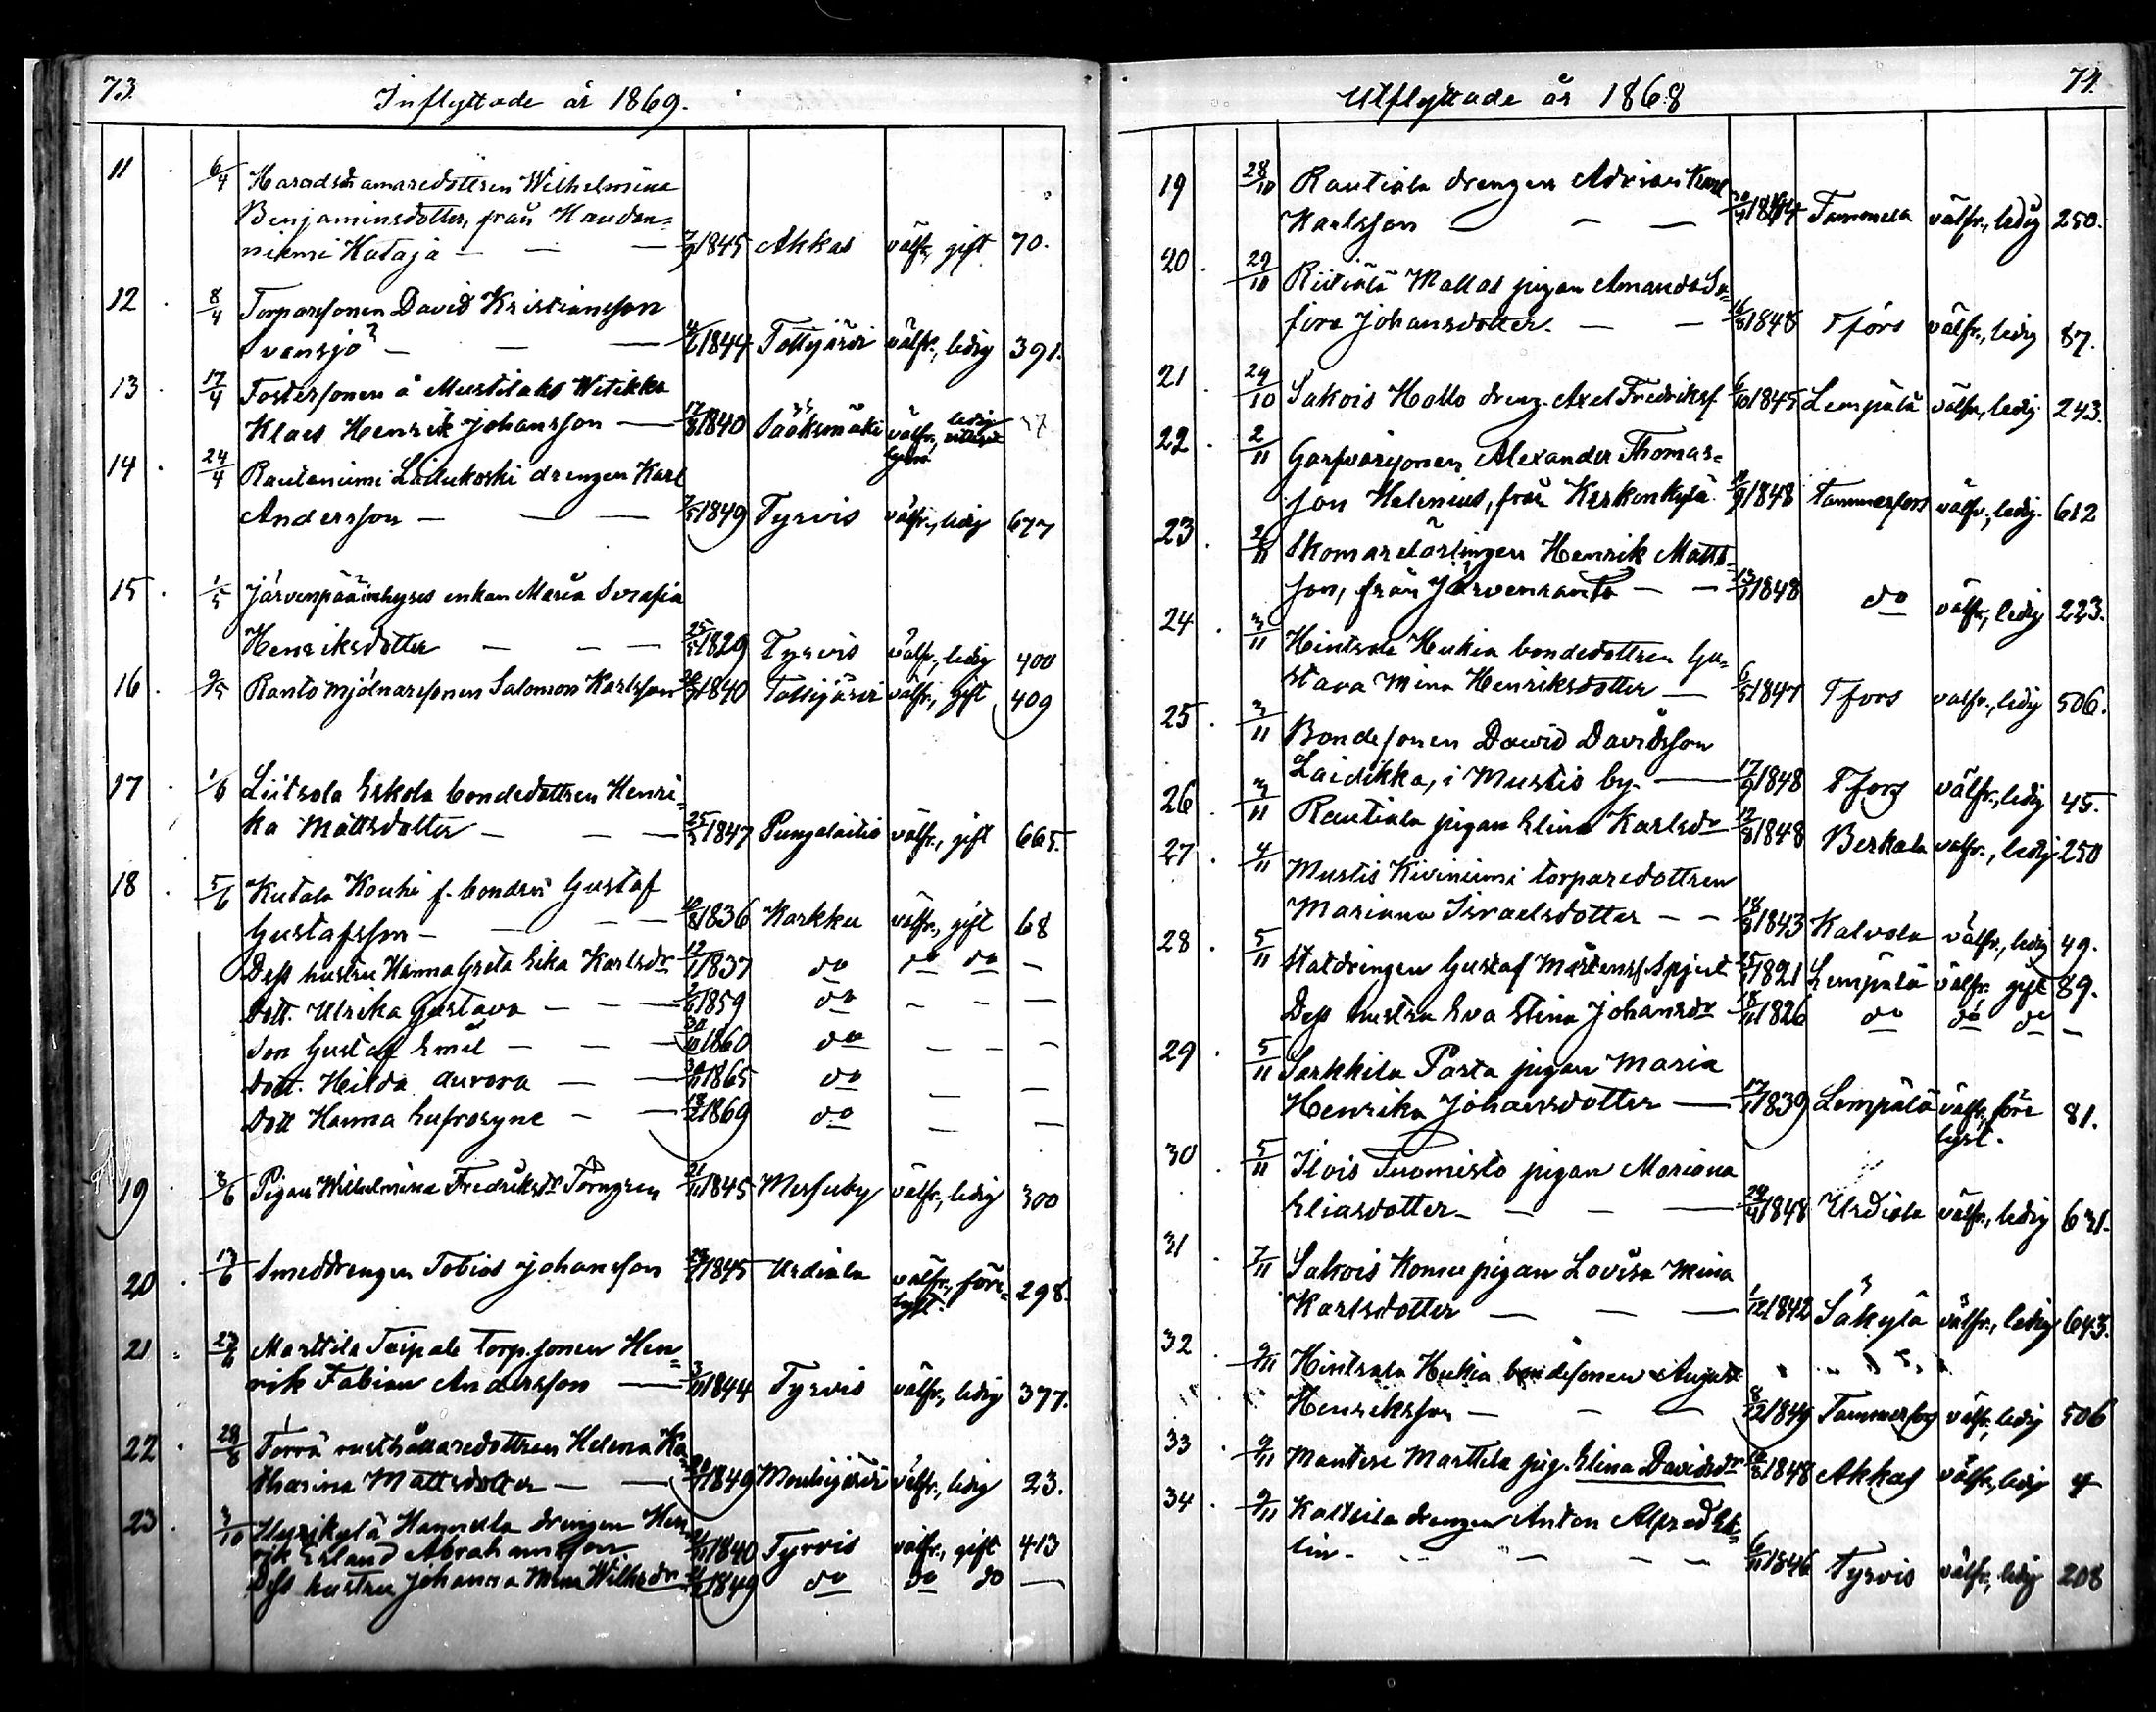 73.
Inflyttade år 1869.
11 . 6/4 Häradsdomaredottren Wilhelmina
Benjaminsdotter, från Haudan-
niemi Kataja — — — 1845 Akkas välfr., gift 70.
12 . 8/4 Torparsonen David Kristiansson
— — 1844 Tottijärvi välfr., ledig 391.
13 . 17/4 Fostersonen å Mustilaks Witikka
Klaes Henrik Johansson — 17/8 1840 Sääksmäki välfr., ledig
14 . 24/4 Rautaniemi Laulukoski drengen Karl
Andersson — — — 7/5 1849 Tyrvis välfr., ledig 677
15 . 1/5 Järvenpää inhyses enkan Maria Serafia
Henriksdotter — — — 25/5 1829 Tyrvis välfr., ledig 400
16 . 9/5 Ranto mjölnarsonen Salomon Karlsson 1840 Tottijärvi välfr., gift 409
17 . 1/6 Liitsola Eskola bondedottren Henri-
ka Mattsdotter — — — 25/3 1847 Pungalaitio välfr., gift 665.
18 . 5/6 Kutala Kouhi f. bonden Gustaf
Gustafsson — — — 1836 Karkku välfr., gift 68
Dess hustru Hanna Greta Lika Karlsdr 12/1 1837 do do do —
Dott. Ulrika Gustava — — — 1859 do — — —
Son Gustaf Emil — — — 30/10 1860 do — — —
Dott. Hilda Aurora — — 1865 do — —
Dott Hanna Eufrosyne — — 18/2 1869 do — —
19 . 3/6 Pigan Wilhelmina Fredriksdr Törngren 21/11 1845 Messuby välfr., ledig 300
20 . 13/6 Smeddrengen Tobias Johansson 1845 Urdiala välfr., före-
lyst. 298.
21 . Marttila Taipale torp.sonen Hen-
rik Fabian Andersson — 1844 Tyrvis välfr., ledig 377.
22 . 28/8 Törrä rusthållaredottren Helena Ka-
tharina Mattsdotter — — 1849 Mouhijärvi välfr., ledig 23.
23 . 3/10 Hyrikylä Hannula drengen Hen-
rik Erland Abrahamsson 1840 Tyrvis välfr., gift 413
Dess hustru Johanna Mina Wilhsdr 1849 do do do —
74.
Utflyttade år 1868
19 28/10 Rautiala drengen Adrian Karl
Karlsson — — — 1844 Tammela välfr., ledig 250.
20 . 29/10 Riitiälä Mallas pigan Amanda So-
fira Johansdotter. — — 16/8 1848 Tfors välfr., ledig 87.
21 . 29/10 Sakois Hollo dreng. Axel Fredriksf. 6/10 1845 Lempälä välfr., ledig 243.
22 . 2/11 Garfvarsonen Alexander Thomas-
son Helenius, från Kirkonkylä 1848 Tammerfors välfr., ledig. 612
23 . 2/11 Skomarelärlingen Henrik Matts-
son, från Järvenranta — — 1848 do välfr., ledig 223.
24 . 3/11 Hintsala Heikia bondedottren Gu-
stava Mina Henriksdotter — 6/5 1847 Tfors välfr., ledig 506.
25 . 3/11 Bondesonen David Davidsson
Laidikka, i Mustio by. — 17/9 1848 Tfors välfr., ledig 45.
26 3/11 Rautiala pigan Elina Karlsdr 17/8 1848 Berkala välfr., ledig 250
27 . 4/11 Mustis Kiviniemi torparedottren
Mariana Israelsdotter — — 18/8 1843 Kalvola välfr., ledig 49.
28 . 5/11 Statdrengen Gustaf Mårtensf. Spjut 1821 Lempälä välfr. gift 89.
Dess hustru Eva Stina Johansdr 18/11 1826 do do do —
29 . 5/11 Sarkkila Parta pigan Maria
Henrika Johansdotter — 17/1 1839 Lempälä välfr., före
lyst. 81.
30 . 5/11 Ilois Tuomisto pigan Mariana
Eliasdotter — — — 1848 Urdiala välfr., ledig 631.
31 . 7/11 Sakois Komu pigan Lovisa Mina
Karlsdotter — — — 1/12 1842 Säkylä välfr., ledig 643.
32 . 9/11 Hintsala Heikia bondesonen August
Henriksson — — — 8/12 1849 Tammerfors välfr., ledig 506
33 . 9/11 Mantere Marttila pig. Elina Davidsdr 1848 Akkas välfr., ledig
34 . 9/11 Kaltsila drengen Anton Alfred Ek-
lin. — — — — 6/11 1846 Tyrvis välfr., ledig 208